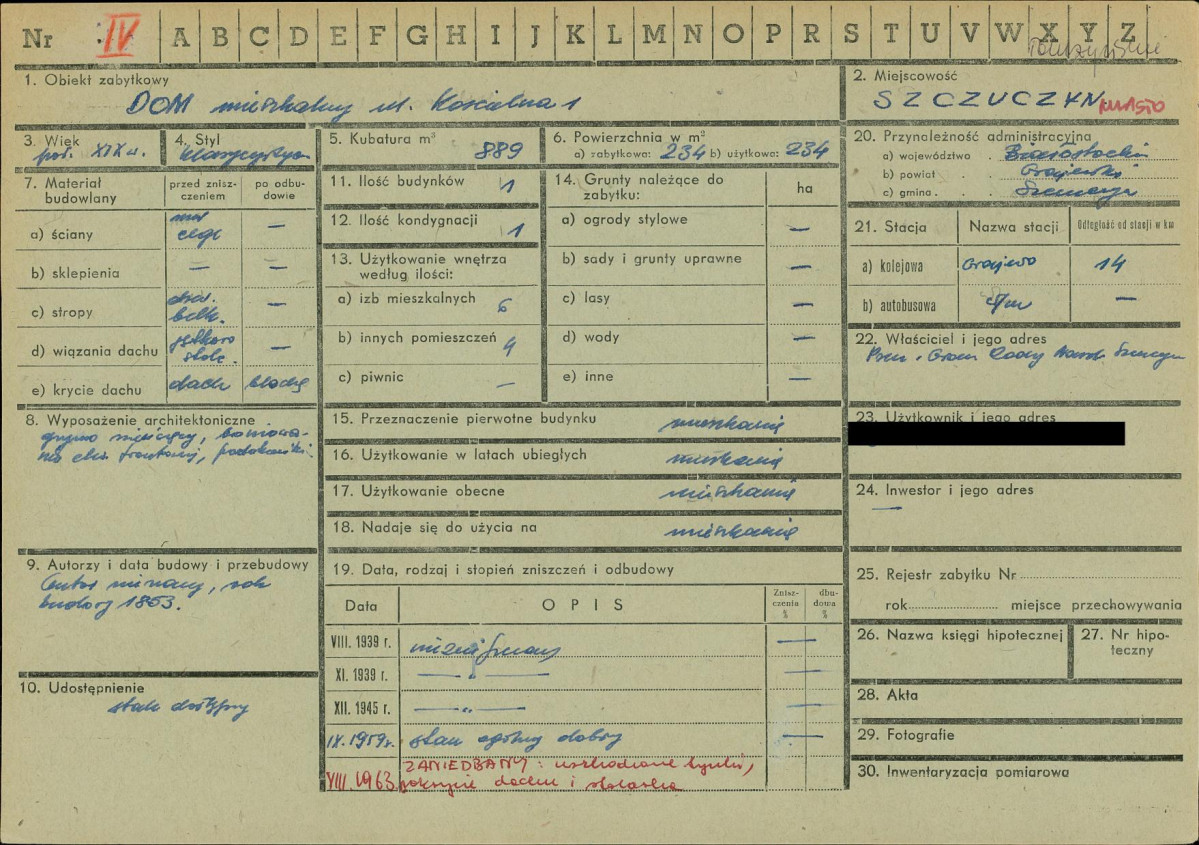 Nr IV A B C D E F G H I J K L M N O P R S T U V W X Y Z
1. Obiekt zabytkowy
DOM mieszkalny ul. Kościelna 1
2. Miejscowość
SZCZUCZYN MIASTO
3. Wiek
poł. XIX w.
4. Styl
klasycystycz.
5. Kubatura m³ 889
6. Powierzchnia w m²
a) zabytkowa: 234 b) użytkowa: 234
7. Materiał budowlany
przed zniszczeniem
po odbudowie
a) ściany mur cegl —
b) sklepienia — —
c) stropy drew. belk. —
d) wiązania dachu —
e) krycie dachu dach blachą
8. Wyposażenie architektoniczne
9. Autorzy i data budowy i przebudowy
Autor nieznany, rok
budowy 1853.
10. Udostępnienie
stale dostępny
11. Ilość budynków 1
12. Ilość kondygnacji 1
13. Użytkowanie wnętrza
według ilości:
a) izb mieszkalnych 6
b) innych pomieszczeń 4
c) piwnic —
14. Grunty należące do
zabytku:
ha
a) ogrody stylowe —
b) sady i grunty uprawne —
c) lasy —
d) wody —
e) inne —
15. Przeznaczenie pierwotne budynku mieszkanie
16. Użytkowanie w latach ubiegłych mieszkanie
17. Użytkowanie obecne mieszkanie
18. Nadaje się do użycia na mieszkanie
19. Data, rodzaj i stopień zniszczeń i odbudowy
Data
OPIS
Zniszczenia %
dbudowa %
VIII. 1939 r. niezniszczony —
XI. 1939 r. — „ — —
XII. 1945 r. — „ — —
IX. 1959 r. stan ogólny dobry —
VIII. 1963 ZANIEDBANY: uszkodzone tynki,
pokrycie dachu i stolarka
20. Przynależność administracyjna
a) województwo Białostockie
b) powiat Grajewski
c) gmina Szczuczyn
21. Stacja
Nazwa stacji
Odległość od stacji w km
a) kolejowa Grajewo 14
b) autobusowa —
22. Właściciel i jego adres
23. Użytkownik i jego adres
24. Inwestor i jego adres
—
25. Rejestr zabytku Nr
rok miejsce przechowywania
26. Nazwa księgi hipotecznej
27. Nr hipoteczny
28. Akta
29. Fotografie
30. Inwentaryzacja pomiarowa